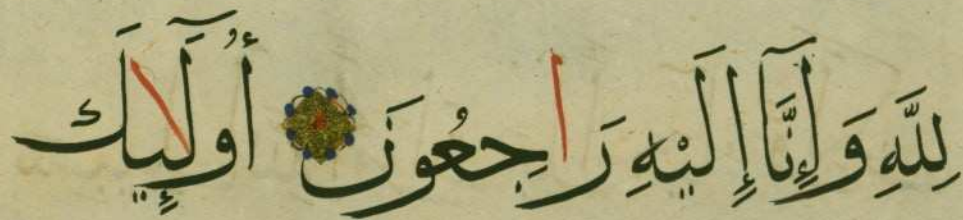 لِلَّهِ وَإِنَّآ إِلَيْهِ رَاجِعُونَ أُولَٰٓئِكَ